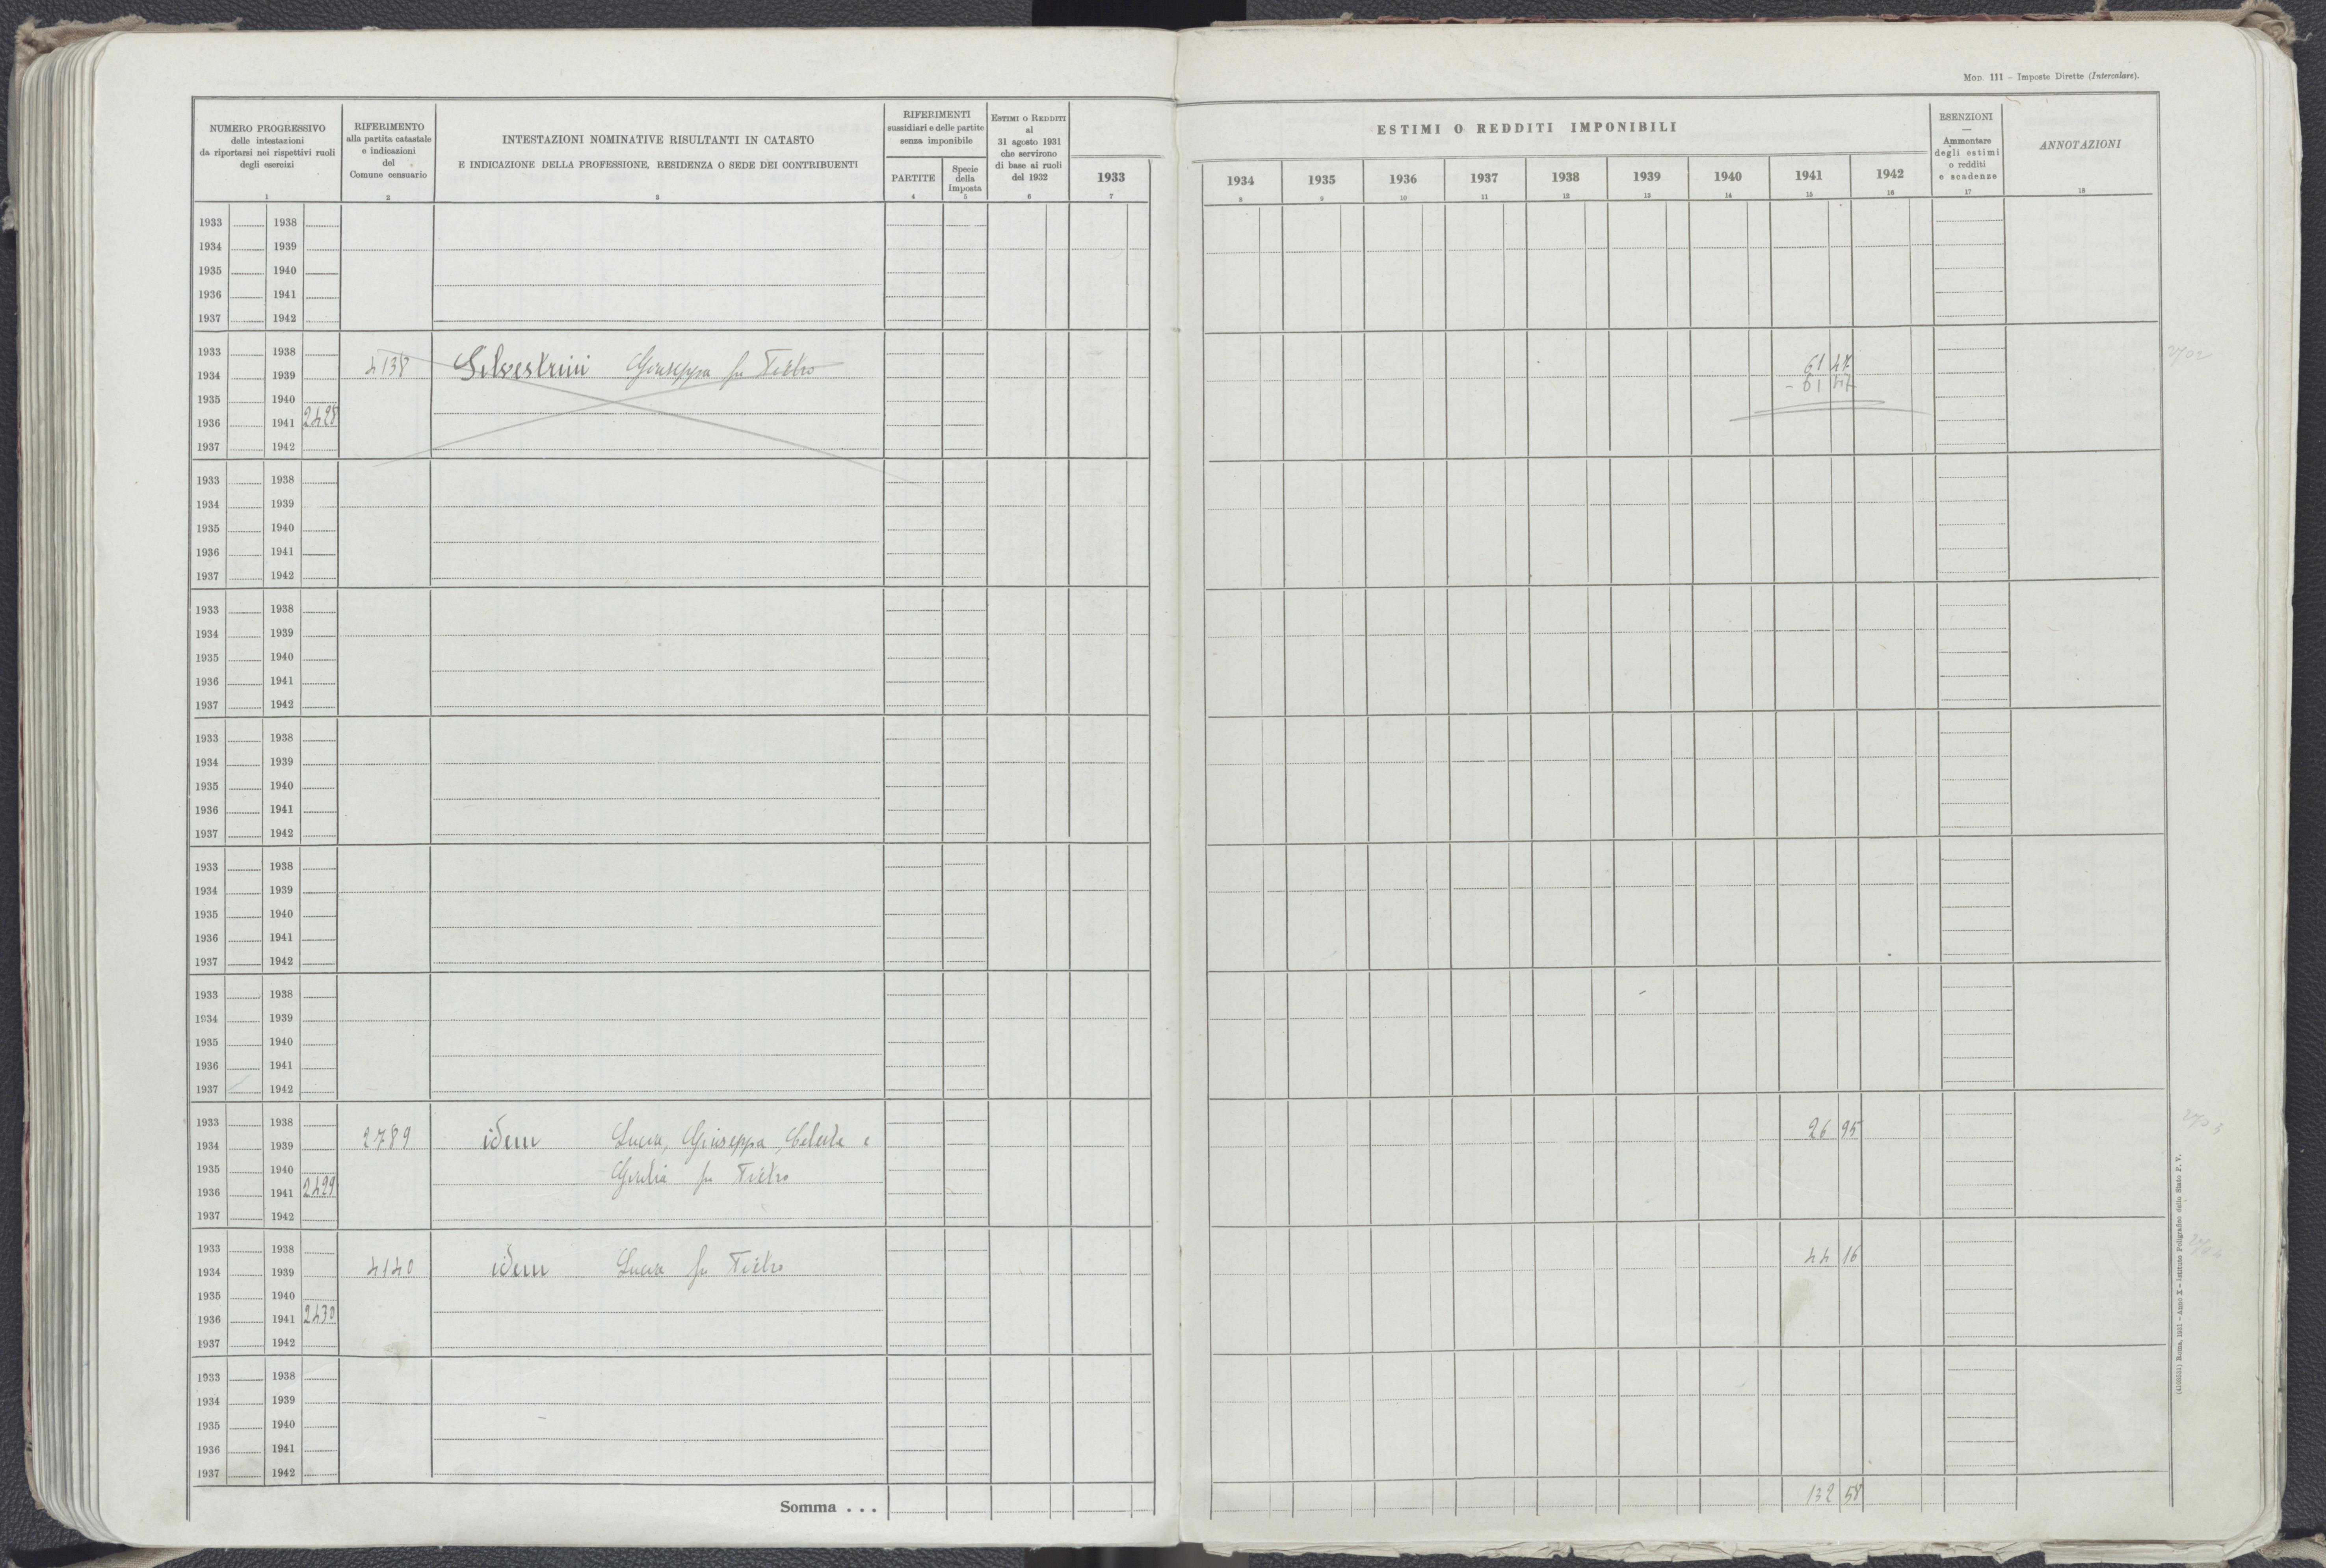 MOD. 111 – Imposte Dirette (Intercalare).
NUMERO PROGRESSIVO
delle intestazioni
da riportarsi nei rispettivi ruoli
degli esercizi
1
RIFERIMENTO
alla partita catastale
e indicazioni
del
Comune censuario
2
INTESTAZIONI NOMINATIVE RISULTANTI IN CATASTO
E INDICAZIONE DELLA PROFESSIONE, RESIDENZA O SEDE DEI CONTRIBUENTI
3
RIFERIMENTI
sussidiari e delle partite
senza imponibile
PARTITE
4
Specie
della
Imposta
5
ESTIMI O REDDITI
al
31 agosto 1931
che servirono
di base ai ruoli
del 1932
6
1933
7
ESTIMI O REDDITI IMPONIBILI
1934 1935 1936 1937 1938 1939 1940 1941 1942
8 9 10 11 12 13 14 15 16
ESENZIONI
—
Ammontare
degli estimi
o redditi
e scadenze
17
ANNOTAZIONI
18
1933 1938
1934 1939
1935 1940
1936 1941
1937 1942
1933 1938
1934 1939 4138 Silvestrini Giuseppa fu Pietro 61 47
1935 1940 - 61 47
1936 1941 2428
1937 1942
2702
1933 1938
1934 1939
1935 1940
1936 1941
1937 1942
1933 1938
1934 1939
1935 1940
1936 1941
1937 1942
1933 1938
1934 1939
1935 1940
1936 1941
1937 1942
1933 1938
1934 1939
1935 1940
1936 1941
1937 1942
1933 1938
1934 1939
1935 1940
1936 1941
1937 1942
1933 1938
1934 1939 2789 idem Lucia, Giuseppa, Celeste e 26 95
1935 1940 Giulia fu Pietro
1936 1941 2429
1937 1942
1933 1938
1934 1939 4140 idem Lucia fu Pietro 44 16
1935 1940
1936 1941 2430
1937 1942
1933 1938
1934 1939
1935 1940
1936 1941
1937 1942
Somma . . . 132 58
Roma, 1931 – Anno X – Istituto Poligrafico dello Stato P. V.